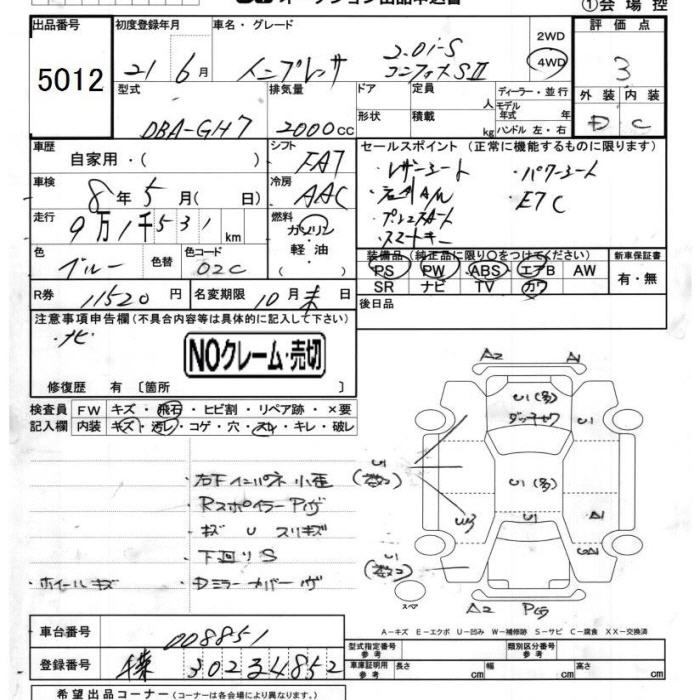 オークション出品申込書 ①会場控
出品番号 初度登録年月 車名・グレード 2WD 評価点
5012 21 6月 インプレッサ 2.0i-S 4WD 3
コンフォートSⅡ
型式 排気量 ドア 定員 人 ディーラー・並行 外装 内装
DBA-GH7 2000cc 形状 積載 kg モデル年式 年 D C
ハンドル 左・右
車歴 シフト セールスポイント(正常に機能するものに限ります)
自家用・( ) FAT ・レザーシート ・パワーシート
車検 冷房 ・ETC
8年5月(日) AAC ・プッシュスタート
走行 燃料 ・スマートキー
9万1千531km ガソリン
色 色替 色コード 軽油
ブルー 02C ( )
装備品(純正品に限り○をつけてください) 新車保証書
PS PW ABS エアB AW 有・無
SR ナビ TV カワ
R券 11520円 名変期限 10月末日 後日品
注意事項申告欄(不具合内容等は具体的に記入して下さい)
・ナビ
NOクレーム・売切
修復歴 有〔箇所 〕
検査員 FW キズ・飛石・ヒビ割・リペア跡・×要
記入欄 内装 キズ・汚レ・コゲ・穴・スレ・キレ・破レ
A2 A1
U1(多)
U1
・右F インパネ小歪
・Rスポイラー Pハゲ
・キズ U スリキズ
・下廻りS
・ホイールキズ ・Dミラーカバーハゲ
U1 U1(多) W3 U1 A1
U1
A2
スペア
A-キズ E-エクボ U-凹み W-補修跡 S-サビ C-腐食 XX-交換済
車台番号 008851
登録番号 千葉 302 34852
型式指定番号 参考 類別区分番号 参考
車庫証明用 参考 長さ cm 幅 cm 高さ cm
希望出品コーナー(コーナーは各会場により異なります。)